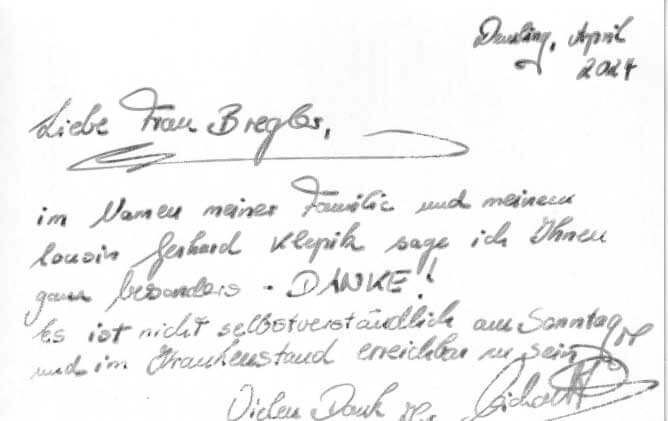 April
2024
Liebe Frau Bregler,
im Namen meiner Familie und meinem
Cousin Gerhard Klepik sage ich Ihnen
ganz besonders - DANKE!
Es ist nicht selbstverständlich am Sonntag
und im Krankenstand erreichbar zu sein
Vielen Dank Ihr